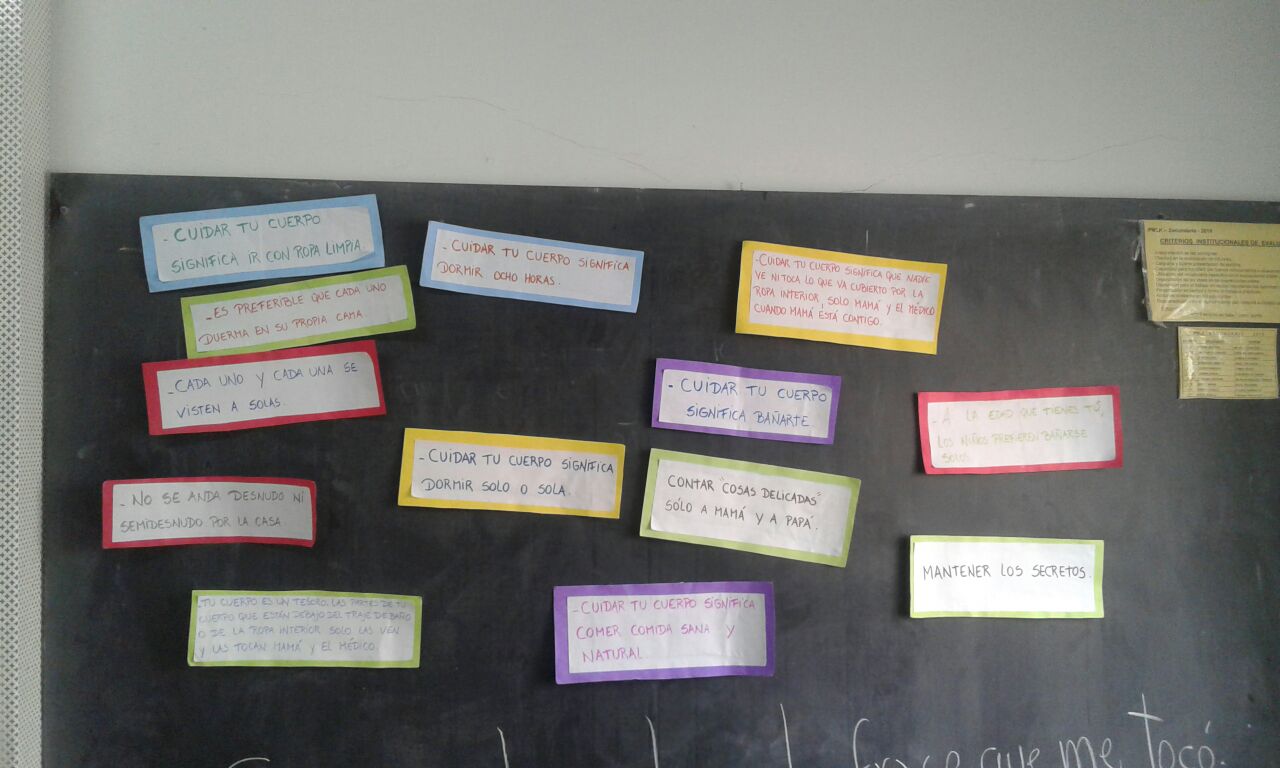 - CUIDAR TU CUERPO
SIGNIFICA IR CON ROPA LIMPIA.
- ES PREFERIBLE QUE CADA UNO
DUERMA EN SU PROPIA CAMA.
- CADA UNO Y CADA UNA SE
VISTEN A SOLAS.
- NO SE ANDA DESNUDO NI
SEMIDESNUDO POR LA CASA.
- TU CUERPO ES UN TESORO. LAS PARTES DE TU
CUERPO QUE ESTÁN DEBAJO DEL TRAJE DE BAÑO
O DE LA ROPA INTERIOR SOLO LAS VEN
Y LAS TOCAN MAMÁ Y EL MÉDICO.
- CUIDAR TU CUERPO SIGNIFICA
DORMIR OCHO HORAS.
- CUIDAR TU CUERPO SIGNIFICA
DORMIR SOLO O SOLA.
- CUIDAR TU CUERPO SIGNIFICA QUE NADIE
VE NI TOCA LO QUE VA CUBIERTO POR LA
ROPA INTERIOR, SOLO MAMÁ Y EL MÉDICO
CUANDO MAMÁ ESTÁ CONTIGO.
- CUIDAR TU CUERPO
SIGNIFICA BAÑARTE.
CONTAR "COSAS DELICADAS"
SÓLO A MAMÁ Y A PAPÁ.
- CUIDAR TU CUERPO SIGNIFICA
COMER COMIDA SANA Y
NATURAL
- A LA EDAD QUE TIENES TÚ,
LOS NIÑOS PREFIEREN BAÑARSE
SOLOS.
MANTENER LOS SECRETOS.
Secundaria - 2019
CRITERIOS INSTITUCIONALES DE
que me tocó.